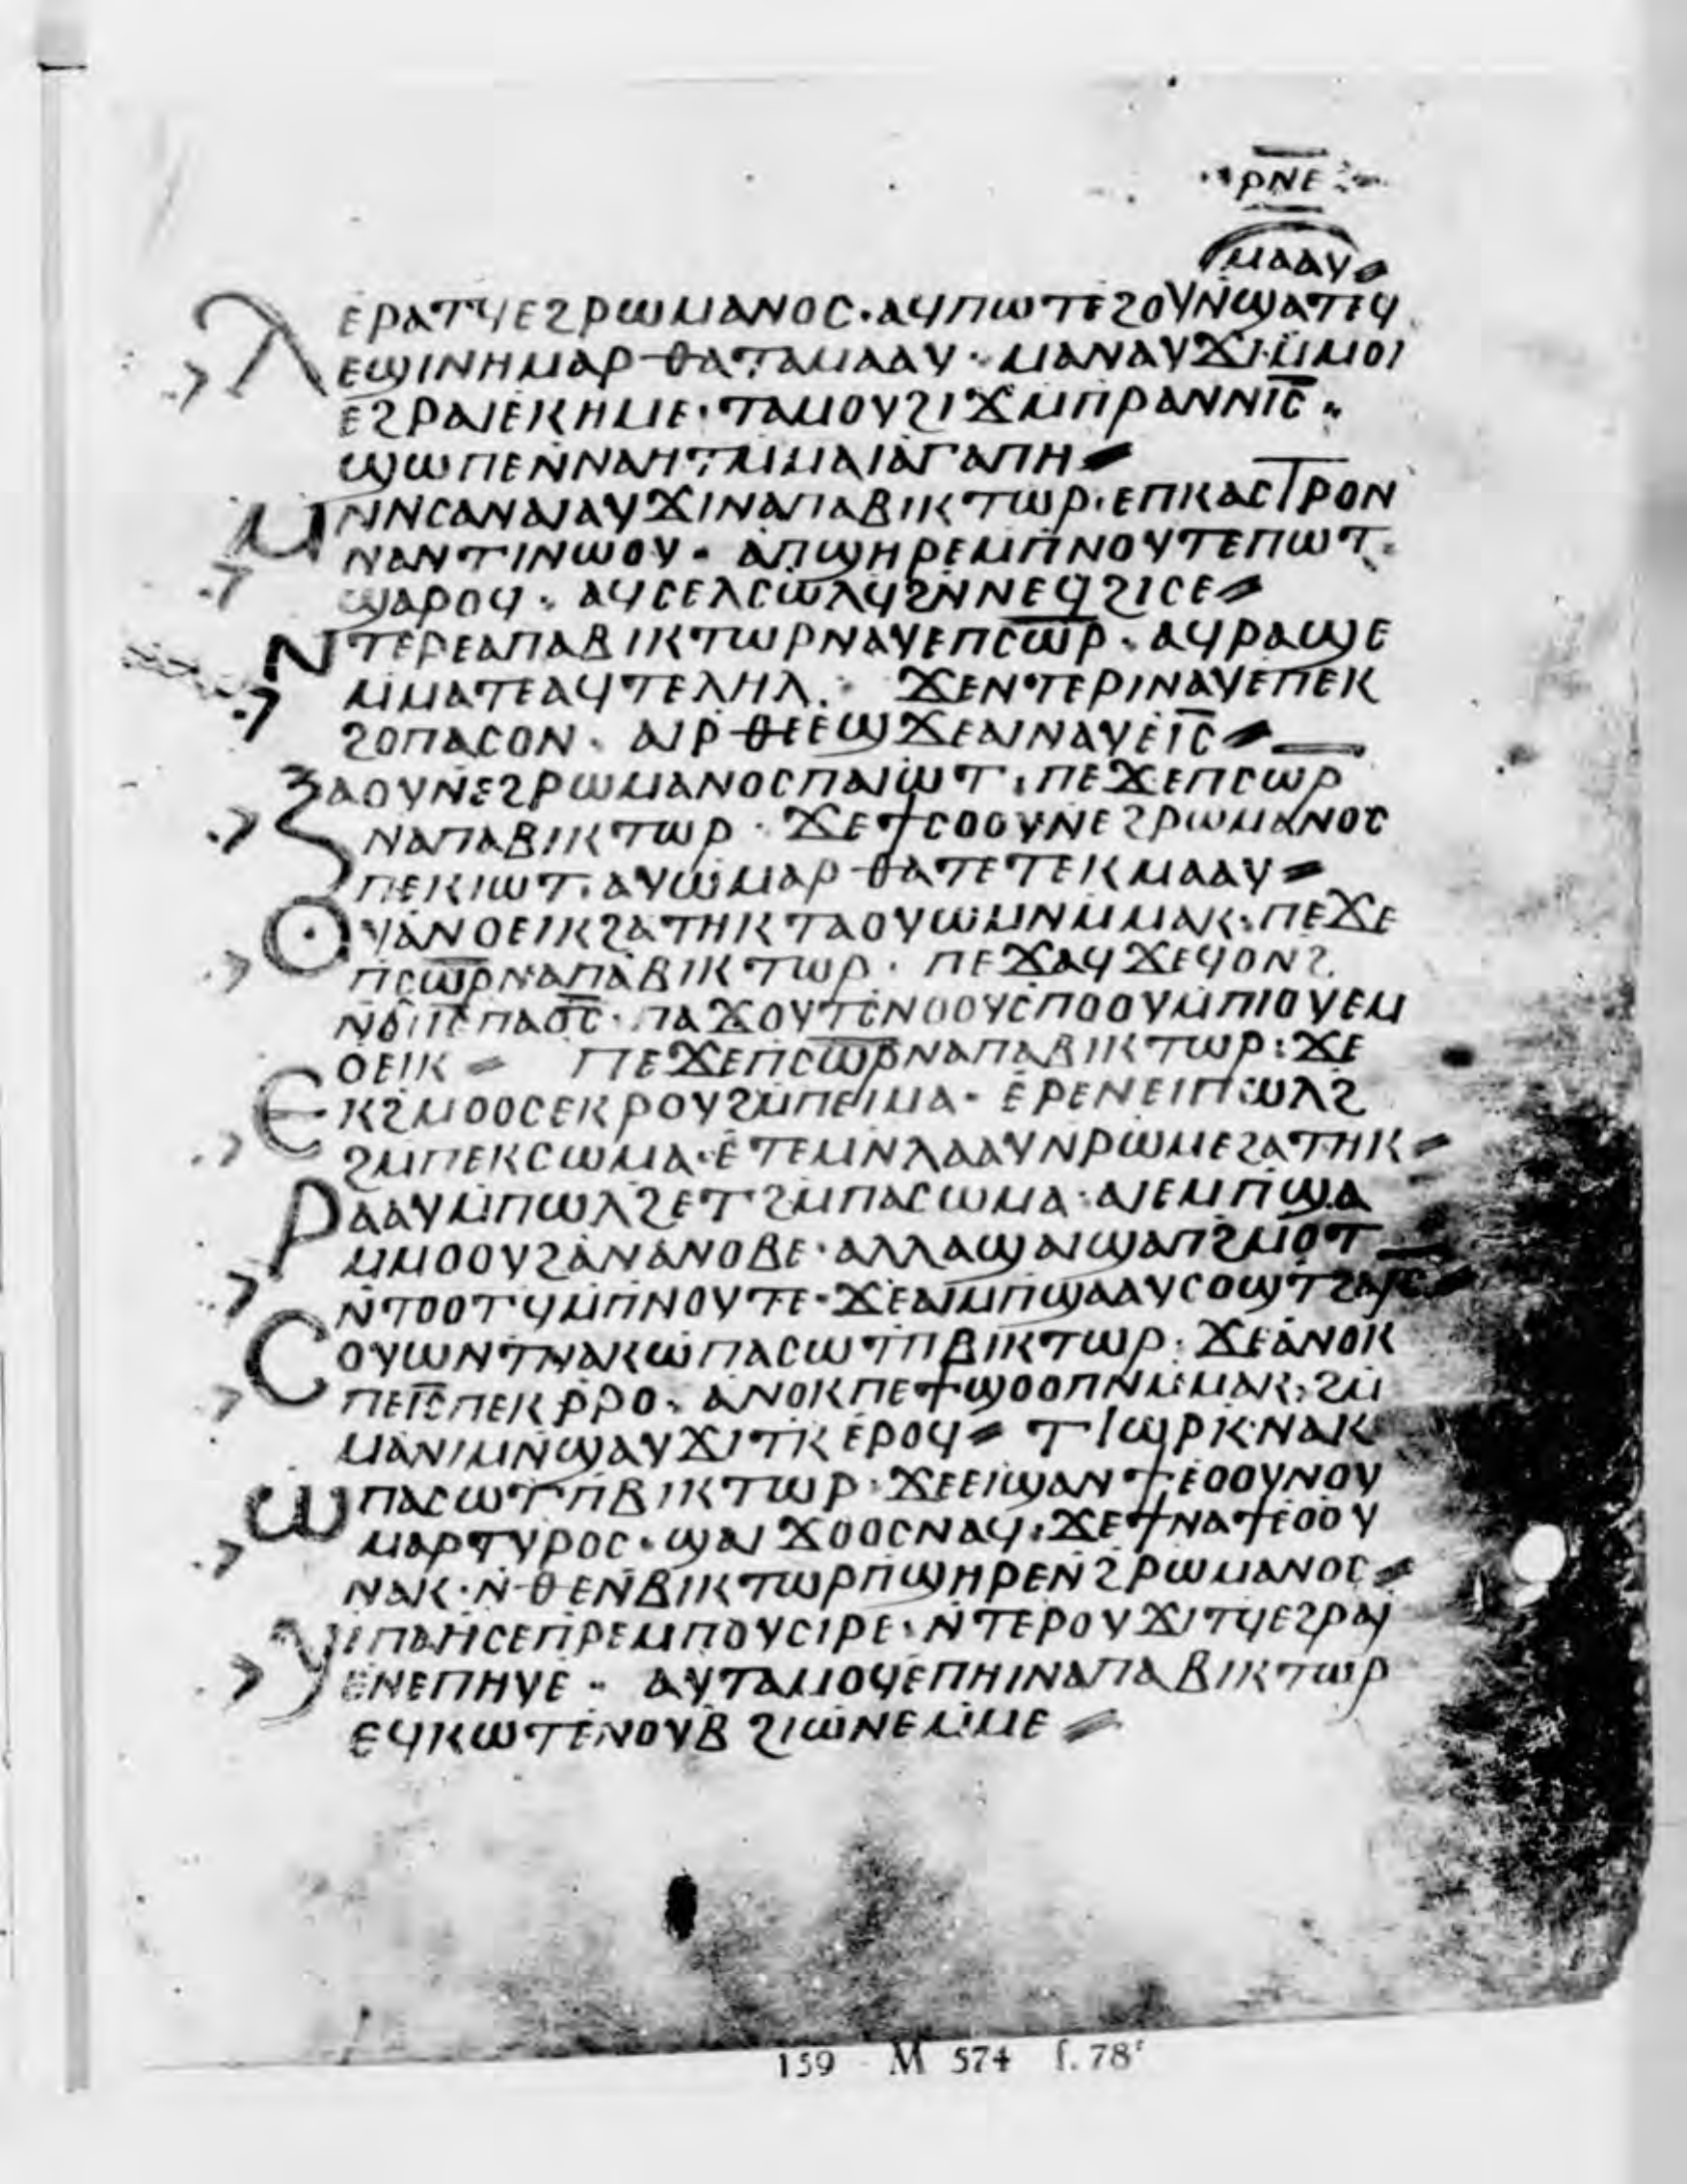 ⲣⲛⲉ
ⲙⲁⲁⲩ
ⲗⲉⲣⲁⲧϥⲉϩⲣⲱⲙⲁⲛⲟⲥ· ⲁϥⲡⲱⲧⲉϩⲟⲩⲛϣⲁⲧⲉϥ
ⲉϣⲓⲛⲏⲙⲁⲣⲑⲁⲧⲁⲙⲁⲁⲩ· ⲙⲁⲛⲁⲩϫⲓⲙⲙⲟⲓ
ⲉϩⲣⲁⲓⲉⲕⲏⲙⲉ· ⲧⲁⲙⲟⲩϩⲓϫⲙⲡⲣⲁⲛⲛⲓ̅ⲥ̅·
ϣⲱⲡⲉⲛⲛⲁⲏⲧⲙⲙⲁⲓⲁⲅⲁⲡⲏ
ⲙⲛⲛⲥⲁⲛⲁⲓⲁⲩϫⲓⲛⲁⲡⲁⲃⲓⲕⲧⲱⲣ· ⲉⲡⲕⲁⲥⲧⲣⲟⲛ
ⲛⲁⲛⲧⲓⲛⲱⲟⲩ· ⲁⲡϣⲏⲣⲉⲙⲡⲛⲟⲩⲧⲉⲡⲱⲧ·
ϣⲁⲣⲟϥ· ⲁϥⲥⲉⲗⲥⲱⲗϥϩⲛⲛⲉϥϩⲓⲥⲉ
ⲛⲧⲉⲣⲉⲁⲡⲁⲃⲓⲕⲧⲱⲣⲛⲁⲩⲉⲡⲥ̅ⲱ̅ⲣ̅· ⲁϥⲣⲁϣⲉ
ⲙⲙⲁⲧⲉⲁϥⲧⲉⲗⲏⲗ· ϫⲉⲛⲧⲉⲣⲓⲛⲁⲩⲉⲡⲉⲕ
ϩⲟⲡⲁⲥⲟⲛ· ⲁⲓⲣⲑⲉⲉϣϫⲉⲁⲓⲛⲁⲩⲉⲓ̅ⲥ̅
ⲍⲁⲟⲩⲛⲉϩⲣⲱⲙⲁⲛⲟⲥⲡⲁⲓⲱⲧ· ⲡⲉϫⲉⲡⲥⲱⲣ
ⲛⲁⲡⲁⲃⲓⲕⲧⲱⲣ· ϫⲉϯⲥⲟⲟⲩⲛⲉϩⲣⲱⲙⲁⲛⲟⲥ
ⲡⲉⲕⲓⲱⲧ· ⲁⲩⲱⲙⲁⲣⲑⲁⲧⲉⲧⲉⲕⲙⲁⲁⲩ
ⲟⲩⲁⲛⲟⲉⲓⲕϩⲁⲧⲏⲕⲧⲁⲟⲩⲱⲙⲛⲙⲙⲁⲕ· ⲡⲉϫⲉ
ⲡⲥ̅ⲱ̅ⲣ̅ⲛⲁⲡⲁⲃⲓⲕⲧⲱⲣ· ⲡⲉϫⲁϥϫⲉϥⲟⲛϩ
ⲛϭⲓⲓ̅ⲥ̅ⲡⲁϭ̅ⲥ̅· ⲡⲁϫⲟⲩⲧⲥⲛⲟⲟⲩⲥⲡⲟⲟⲩⲙⲡⲓⲟⲩⲉⲙ
ⲟⲉⲓⲕ ⲡⲉϫⲉⲡⲥ̅ⲱ̅ⲣ̅ⲛⲁⲡⲁⲃⲓⲕⲧⲱⲣ: ϫⲉ
ⲉⲕϩⲙⲟⲟⲥⲉⲕⲣⲟⲩϩⲙⲡⲉⲓⲙⲁ· ⲉⲣⲉⲛⲉⲓⲡⲱⲗϩ
ϩⲙⲡⲉⲕⲥⲱⲙⲁ· ⲉⲧⲉⲙⲛⲗⲁⲁⲩⲛⲣⲱⲙⲉϩⲁⲧⲏⲕ
ⲣⲁⲁⲩⲙⲡⲱⲗϩⲉⲧϩⲙⲡⲁⲥⲱⲙⲁ· ⲁⲓⲉⲙⲡϣⲁ
ⲙⲙⲟⲟⲩϩⲁⲛⲁⲛⲟⲃⲉ· ⲁⲗⲗⲁϣⲁⲓϣⲁⲡϩⲙⲟⲧ
ⲛⲧⲟⲟⲧϥⲙⲡⲛⲟⲩⲧⲉ· ϫⲉⲁⲓⲙⲡϣⲁⲁⲩⲥⲟϣⲧ
ⲥⲟⲩⲱⲛⲧⲛⲁⲕⲱⲡⲁⲥⲱⲧⲡⲃⲓⲕⲧⲱⲣ: ϫⲉⲁⲛⲟⲕ
ⲡⲉⲓ̅ⲥ̅ⲡⲉⲕⲣⲣⲟ· ⲁⲛⲟⲕⲡⲉϯϣⲟⲟⲡⲛⲙⲙⲁⲕ· ϩⲙ
ⲙⲁⲛⲓⲙⲛϣⲁⲩϫⲓⲧⲕⲉⲣⲟϥ ϯⲱⲣⲕⲛⲁⲕ
ⲱⲡⲁⲥⲱⲧⲡⲃⲓⲕⲧⲱⲣ· ϫⲉⲉⲓϣⲁⲛϯⲉⲟⲟⲩⲛⲟⲩ
ⲙⲁⲣⲧⲩⲣⲟⲥ· ϣⲁⲓϫⲟⲟⲥⲛⲁϥ· ϫⲉϯⲛⲁϯⲉⲟⲟⲩ
ⲛⲁⲕ· ⲛⲑⲉⲛⲃⲓⲕⲧⲱⲣⲡϣⲏⲣⲉⲛϩⲣⲱⲙⲁⲛⲟⲥ
ϥⲓⲡⲁⲏⲥⲉⲡⲣⲉⲙⲡⲟⲩⲥⲓⲣⲉ· ⲛⲧⲉⲣⲟⲩϫⲓⲧϥⲉϩⲣⲁⲓ
ⲉⲛⲉⲡⲏⲩⲉ· ⲁⲩⲧⲁⲙⲟϥⲉⲡⲏⲓⲛⲁⲡⲁⲃⲓⲕⲧⲱⲣ
ⲉϥⲕⲱⲧⲉⲛⲟⲩⲃϩⲓⲱⲛⲉⲙⲙⲉ
159 M 574 f. 78ʳ